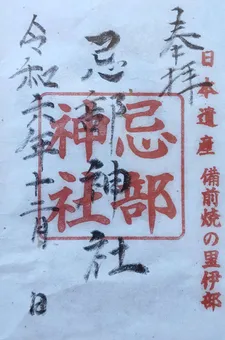 奉拝
日本遺産 備前焼の里伊部
忌部神社
忌部神社
令和六年十二月 日